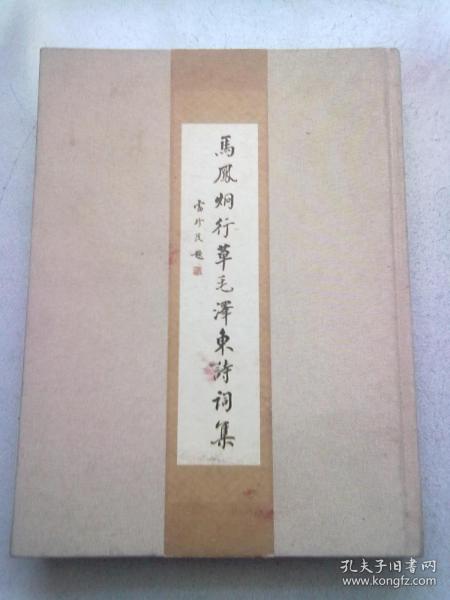 馬鳳炯行草毛澤東詩詞集
雷珍民題
孔夫子旧书网
www.kongfz.com